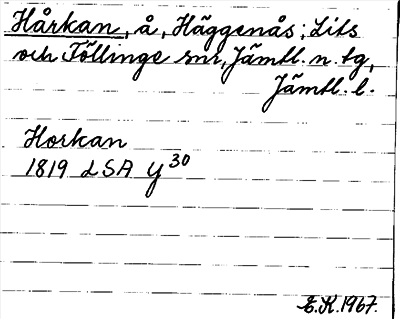 Hårkan, å, Häggenås; Lits
och Föllinge snr, Jämtl. n. tg,
Jämtl. l.
Horkan
1819 LSA Y 30
E.K. 1967.